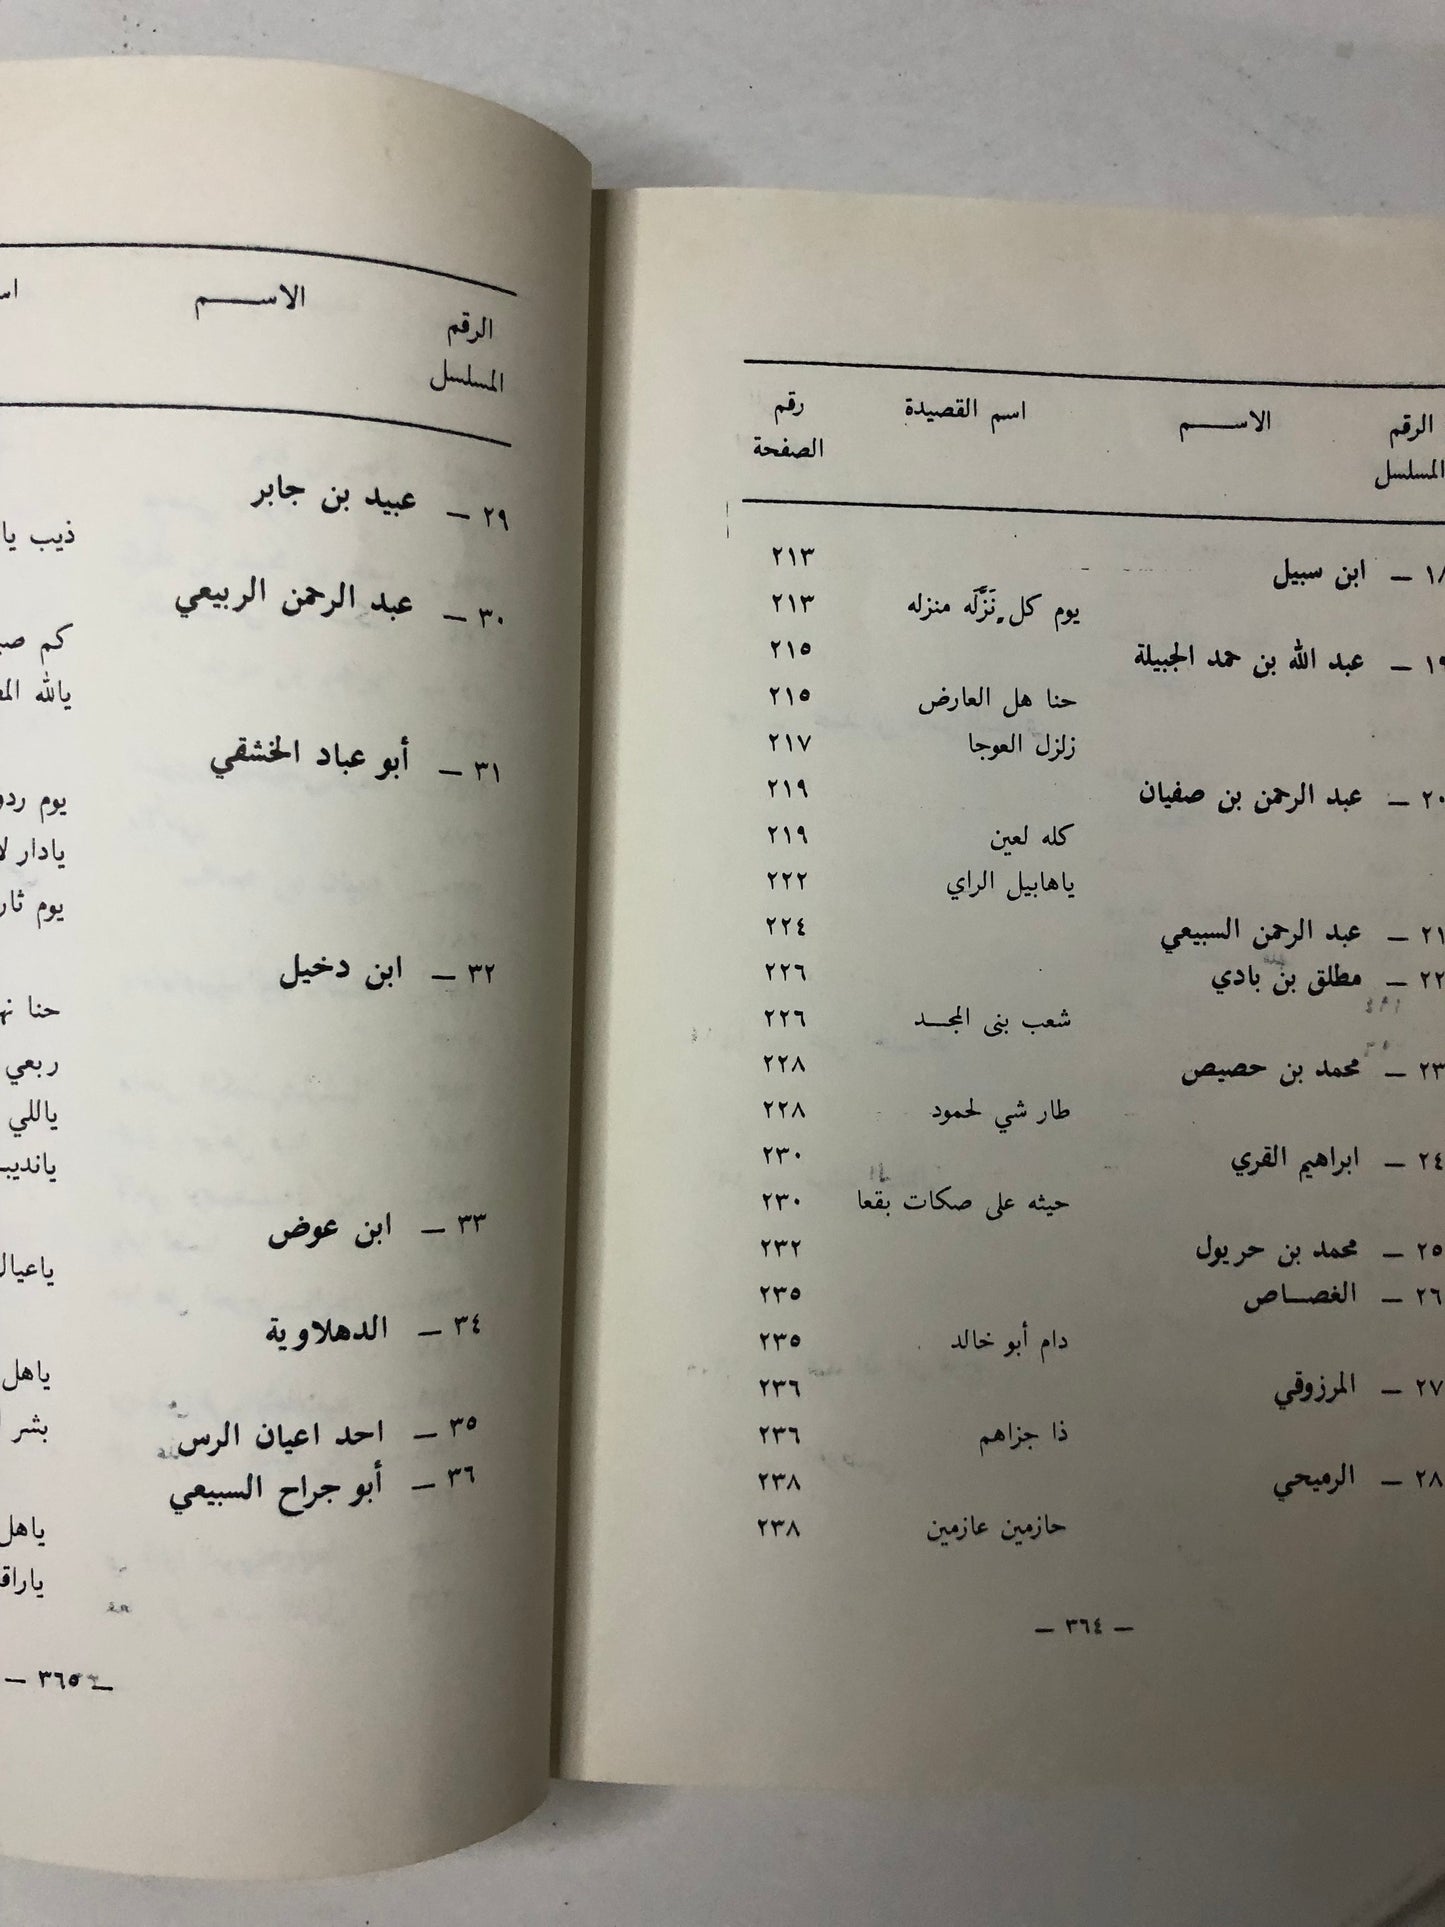 الرقم المسلسل الاســـم اسم القصيدة رقم الصفحة
١٨ — ابن سبيل ٢١٣
يوم كلٍ نَزَّلَه منزله ٢١٣
١٩ — عبد الله بن حمد الجبيلة ٢١٥
حنا هل العارض ٢١٥
زلزل العوجا ٢١٧
٢٠ — عبد الرحمن بن صفيان ٢١٩
كله لعين ٢١٩
ياهابيل الراي ٢٢٢
٢١ — عبد الرحمن السبيعي ٢٢٤
٢٢ — مطلق بن بادي ٢٢٦
شعب بنى المجــد ٢٢٦
٢٣ — محمد بن حصيص ٢٢٨
طار شي لحمود ٢٢٨
٢٤ — ابراهيم القري ٢٣٠
حيثه على صكات بقعا ٢٣٠
٢٥ — محمد بن حريول ٢٣٢
٢٦ — الغصــاص ٢٣٥
دام أبو خالد ٢٣٥
٢٧ — المرزوقي ٢٣٦
ذا جزاهم ٢٣٦
٢٨ — الرميحي ٢٣٨
حازمين عازمين ٢٣٨
— ٣٦٤ —
الرقم المسلسل الاســـم
٢٩ — عبيد بن جابر
ذيب
٣٠ — عبد الرحمن الربيعي
كم
يالله
٣١ — أبو عباد الخشقي
يوم
يادار
يوم
٣٢ — ابن دخيل
حنا
ربعي
ياللي
٣٣ — ابن عوض
٣٤ — الدهلاوية
ياهل
بشر
٣٥ — احد اعيان الرس
٣٦ — أبو جراح السبيعي
ياهل
— ٣٦٥ —